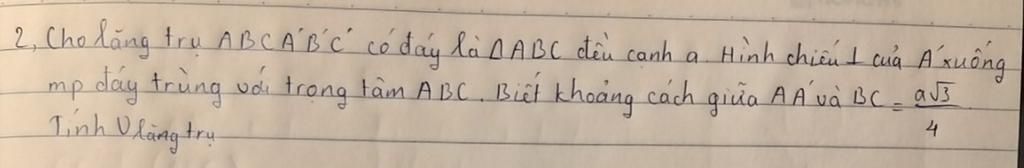 2, Cho lăng trụ ABCA'B'C' có đáy là ΔABC đều cạnh a. Hình chiếu ⊥ của A' xuống
mp đáy trùng với trọng tâm ABC. Biết khoảng cách giữa AA' và BC = a√3/4
Tính V lăng trụ